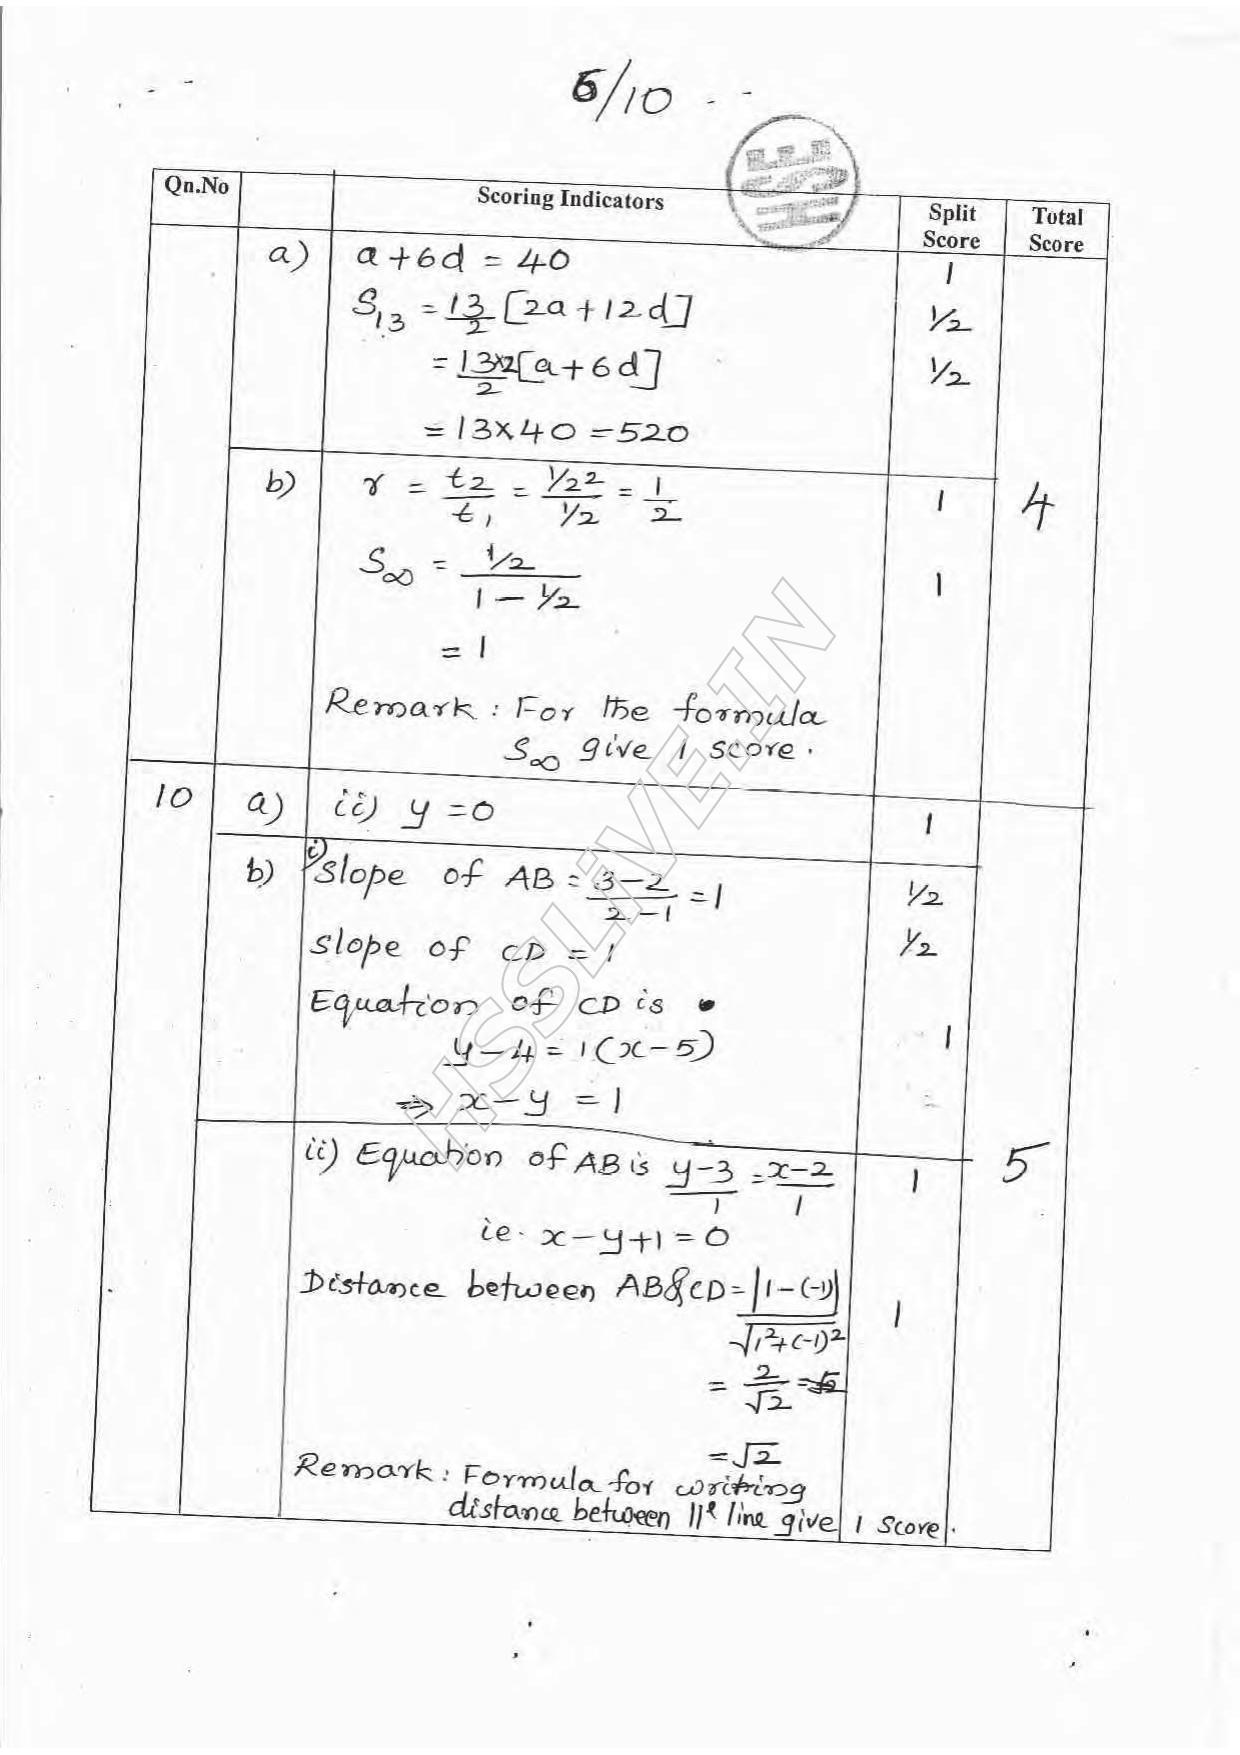 6/10
HSE
Qn.No Scoring Indicators Split Score Total Score
a) a+6d = 40 1
S₁₃ = 13/2 [2a+12d] 1/2
= 13×2/2 [a+6d] 1/2
= 13×40 = 520
b) r = t₂/t₁ = 1/2²/1/2 = 1/2 1 4
S∞ = 1/2 / 1 - 1/2 1
= 1
Remark : For the formula
S∞ give 1 score.
10 a) ii) y = 0 1
b) i) Slope of AB = 3-2/2-1 = 1 1/2
Slope of CD = 1 1/2
Equation of CD is
y-4 = 1(x-5) 1
⇒ x-y = 1
ii) Equation of AB is y-3/1 = x-2/1 1 5
ie. x-y+1 = 0
Distance between AB&CD = |1-(-1)|/√1²+(-1)² 1
= 2/√2
= √2
Remark : Formula for writing
distance between ||ˡ line give 1 score.
HSSLiVE.IN